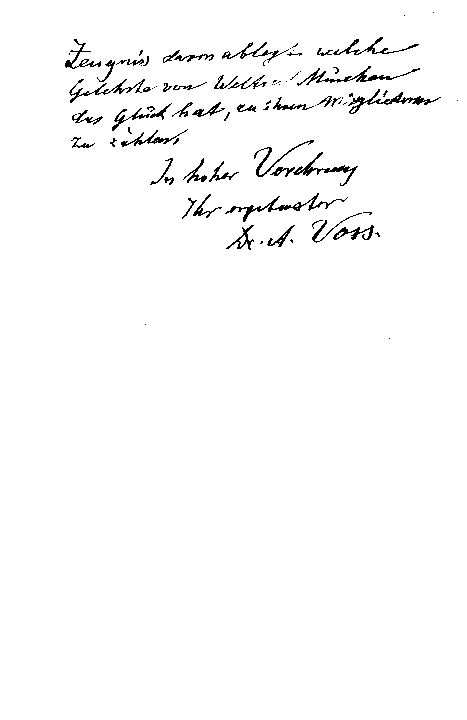 Zeugnis davon ablegt, welche
Gelehrte von Weltruf München
das Glück hat, zu ihren Mitgliedern
zu zählen.
In hoher Verehrung
Ihr ergebenster
Dr. A. Voss.